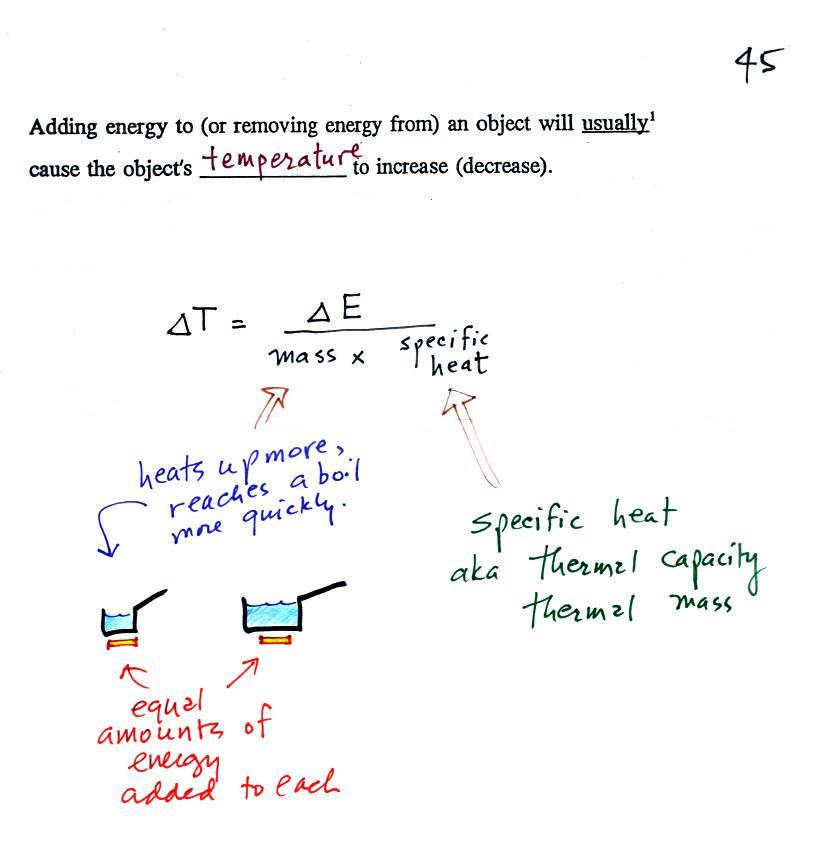 45
Adding energy to (or removing energy from) an object will usually¹
cause the object's temperature to increase (decrease).
ΔT = ΔE
mass x specific
heat
heats up more,
reaches a boil
more quickly.
specific heat
aka thermal capacity
thermal mass
equal
amounts of
energy
added to each